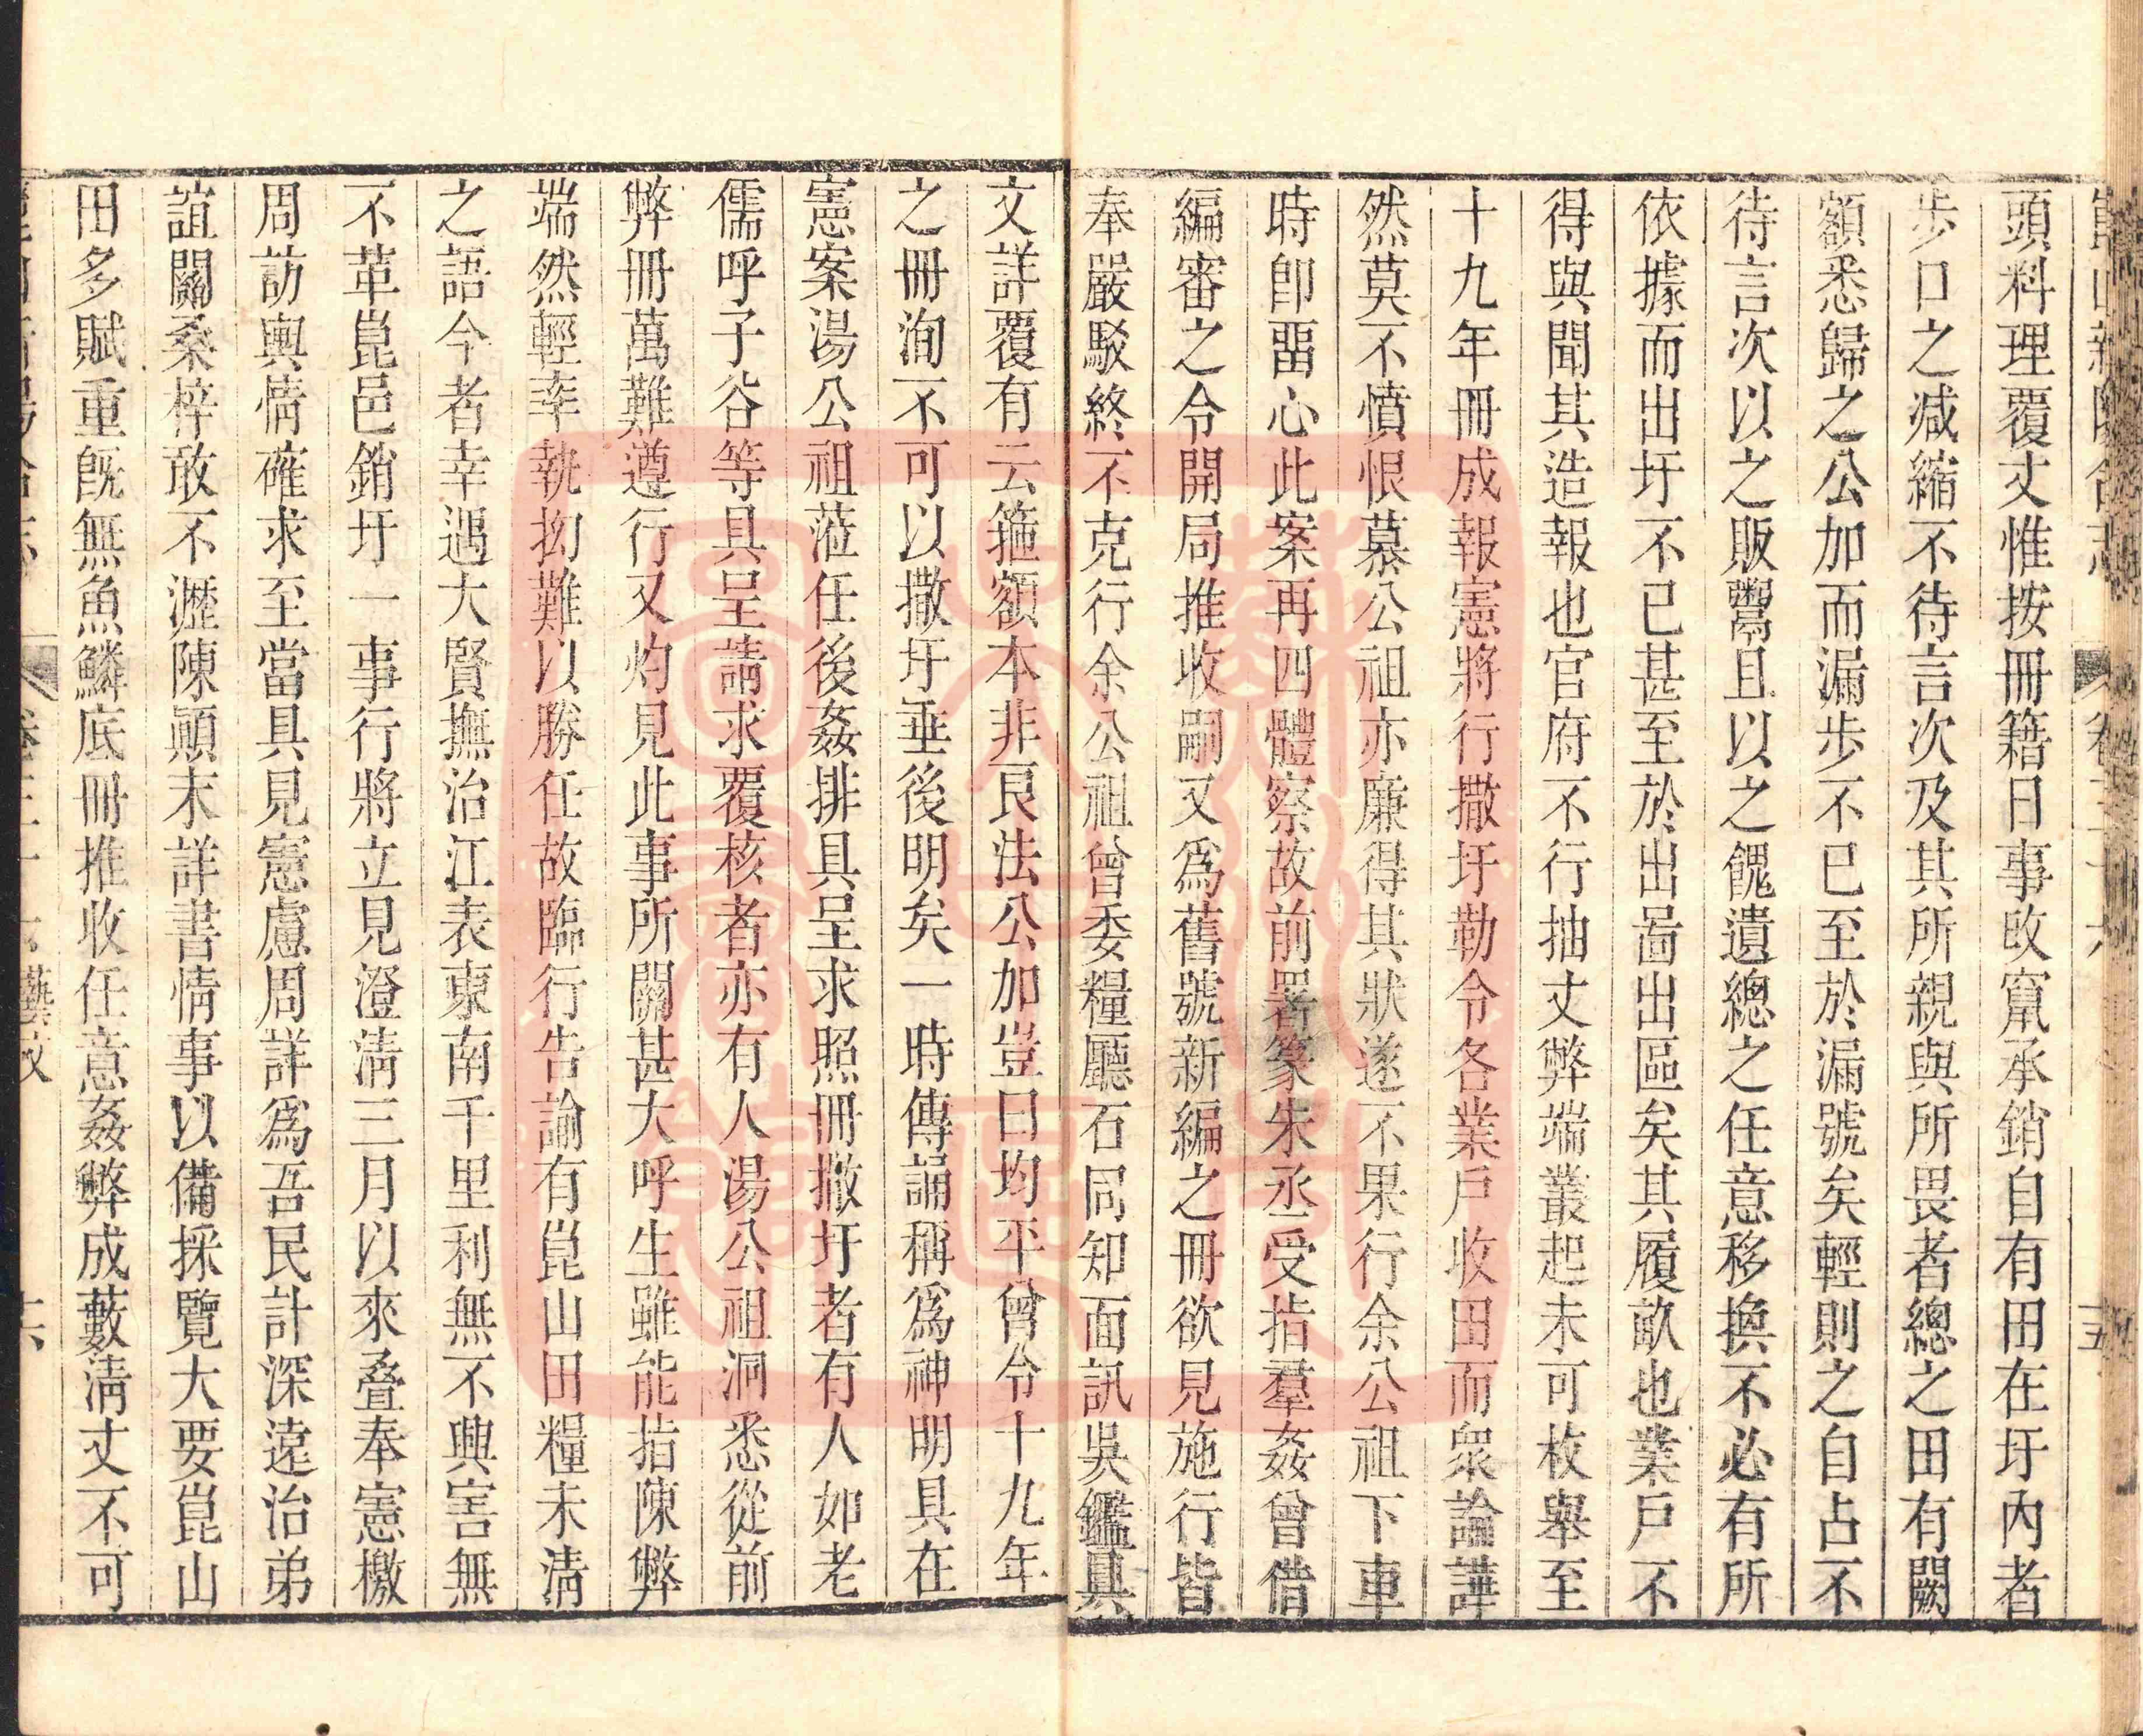 頭料理覆丈惟按冊籍日事改竄承銷自有田在圩內者
步口之減縮不待言次及其所親與所畏者總之田有闕
額悉歸之公加而漏步不已至於漏號矣輕則之自占不
待言次以之販鬻且以之餽遺總之任意移換不必有所
依據而出圩不已甚至於出啚出區矣其履畝也業戶不
得與聞其造報也官府不行抽丈弊端叢起未可枚舉至
十九年冊成報憲將行撒圩勒令各業戶收田而眾論譁
然莫不憤恨慕公祖亦廉得其狀遂不果行余公祖下車
時卽畱心此案再四體察故前署篆朱丞受指羣姦曾借
編審之令開局推收嗣又爲舊號新編之冊欲見施行皆
奉嚴駁終不克行余公祖曾委糧廳石同知面訊吳鑑具
文詳覆有云箍額本非良法公加豈曰均平曾令十九年
之冊洵不可以撒圩垂後明矣一時傳誦稱爲神明具在
憲案湯公祖蒞任後姦排具呈求照冊撒圩者有人如老
儒呼子谷等具呈請求覆核者亦有人湯公祖洞悉從前
弊冊萬難遵行又灼見此事所關甚大呼生雖能指陳弊
端然輕率執拗難以勝任故臨行告諭有崑山田糧未清
之語今者幸遇大賢撫治江表東南千里利無不興害無
不革崑邑銷圩一事行將立見澄清三月以來叠奉憲檄
周訪輿情確求至當具見憲慮周詳爲吾民計深遠治弟
誼關桑梓敢不瀝陳顚末詳書情事以備採覽大要崑山
田多賦重旣無魚鱗底冊推收任意姦弊成藪清丈不可